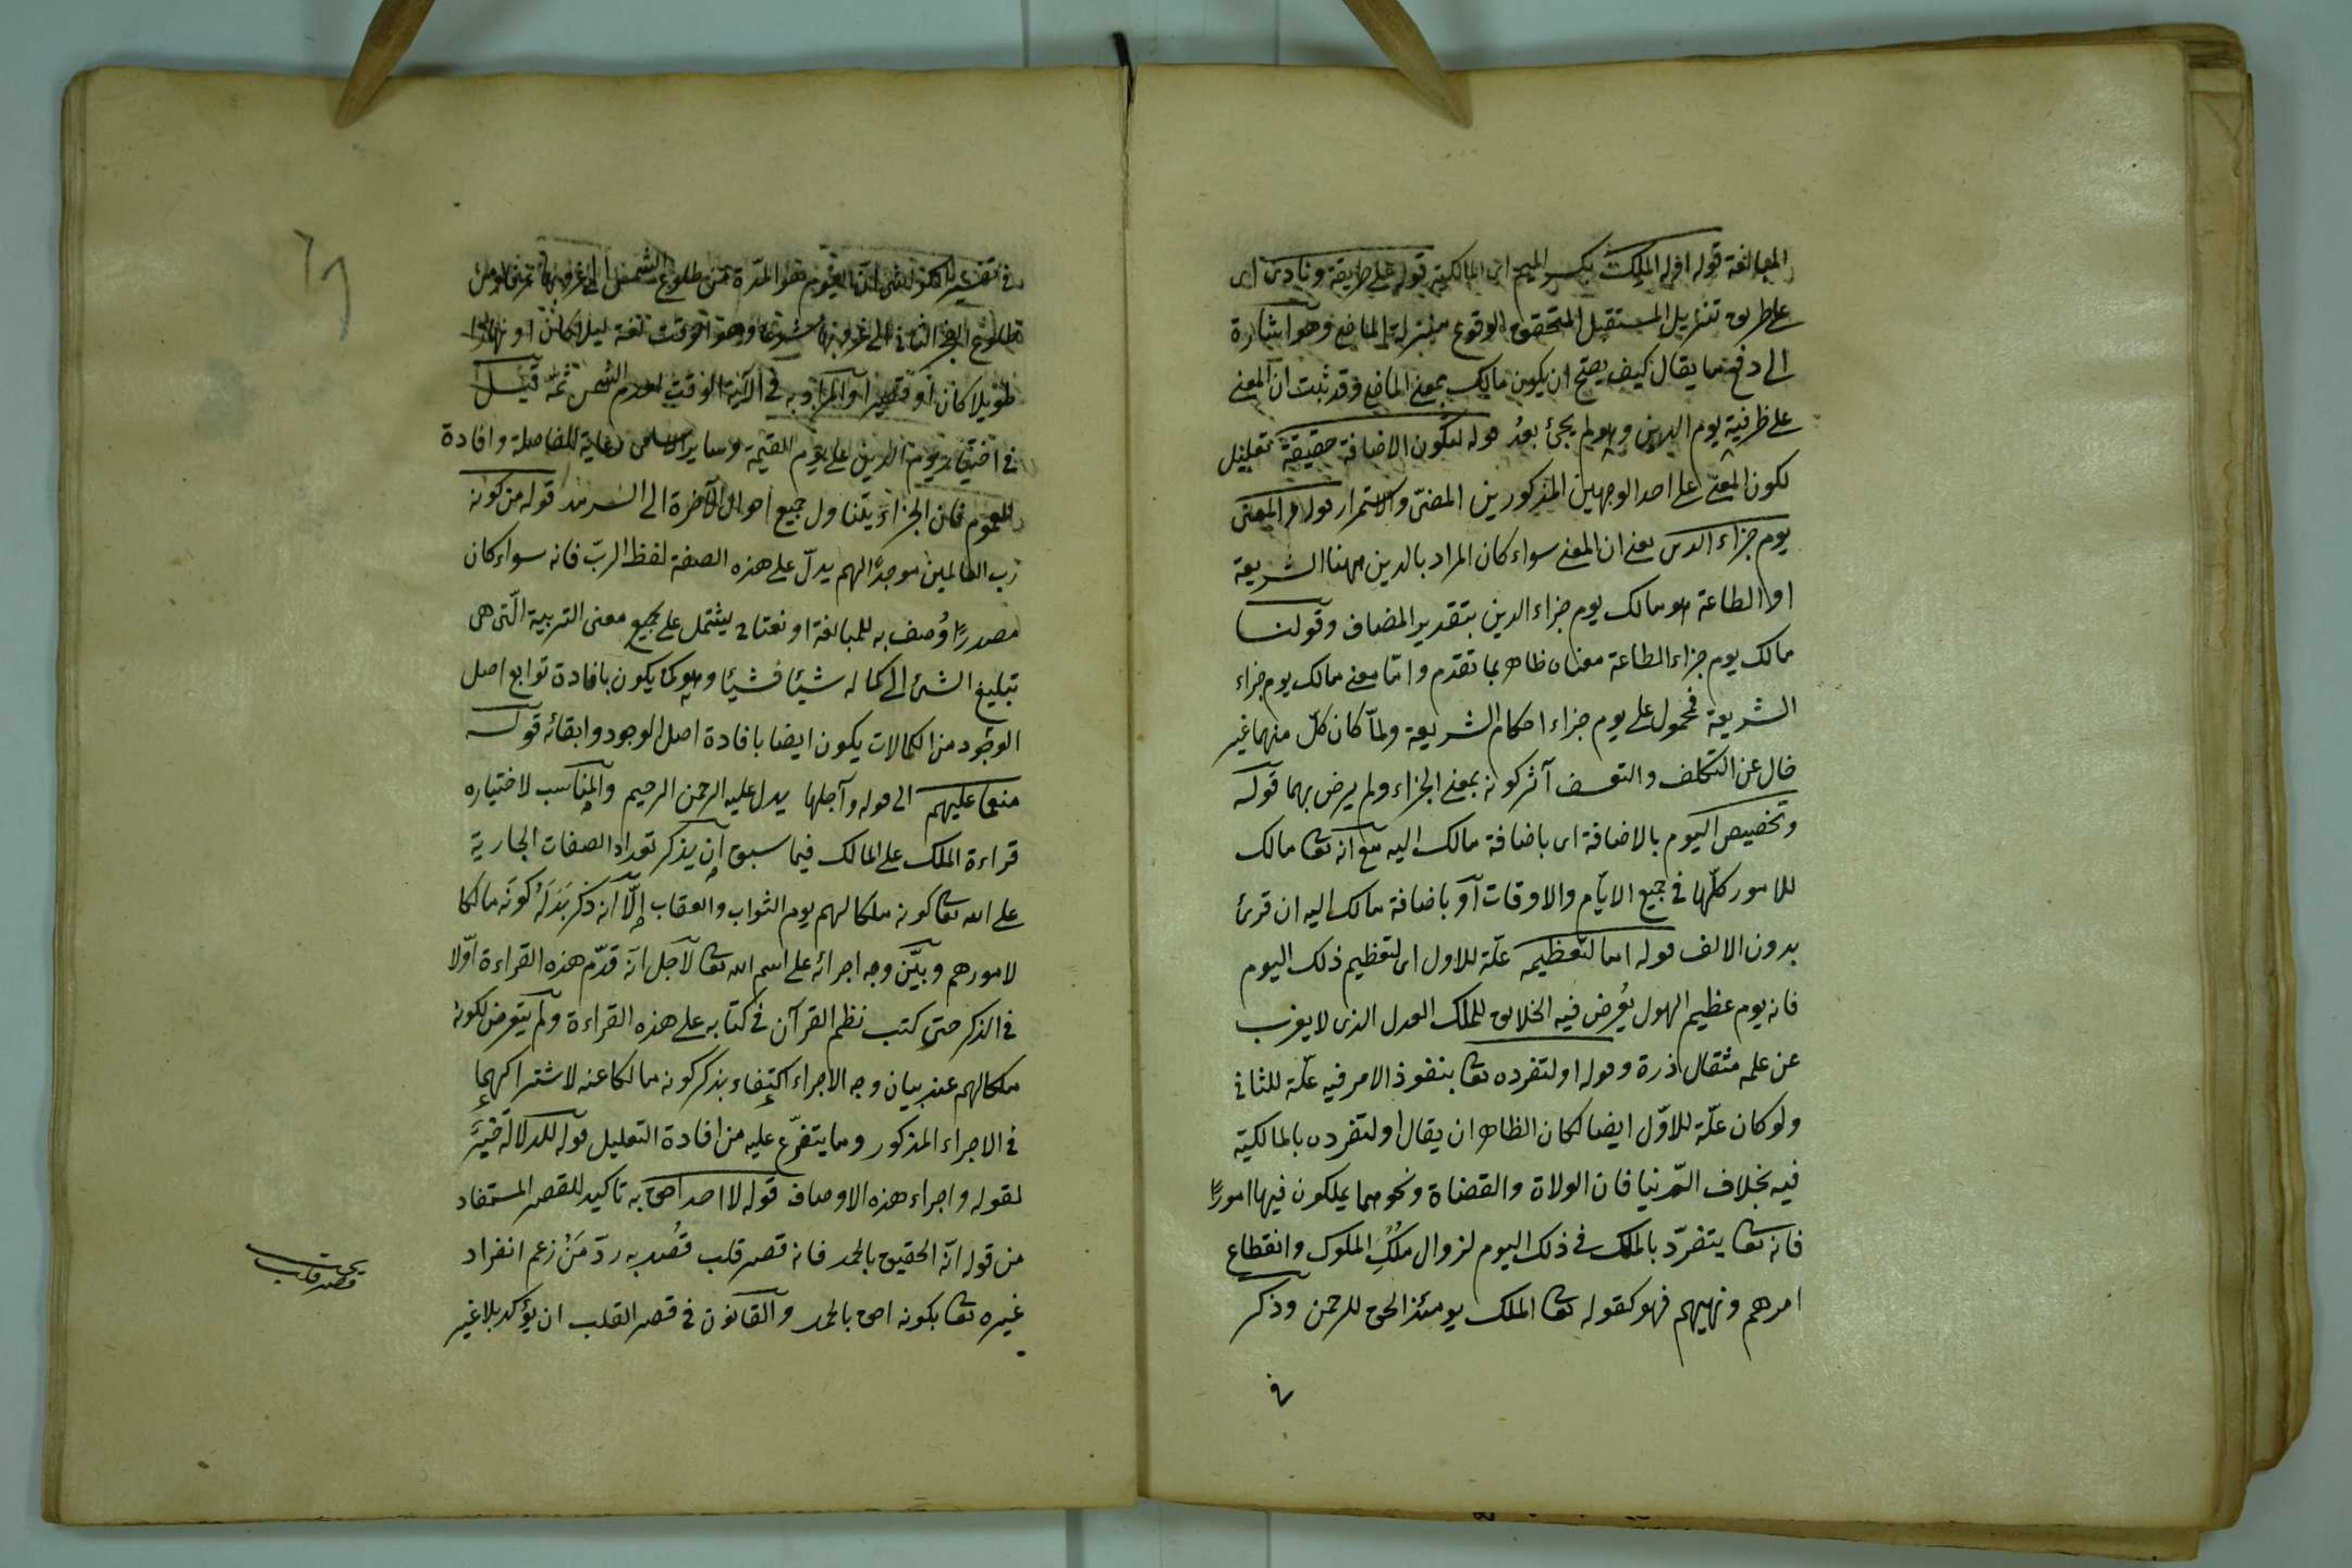 المبالغة قوله او له الملك بكسر الميم اى المالكية قوله على طريقة ونادى اى
على طريق تنزيل المستقبل المتحقق الوقوع منزلة الماضى وهو اشارة
الى دفع ما يقال كيف يصح ان يكون مالك بمعنى الماضى وقد ثبت ان المعنى
على ظرفية يوم الدين وهو لم يجئ بعدُ قوله لتكون الاضافة حقيقة تعليل
لكون المعنى على احد الوجهين المذكورين المضىّ والاستمرار قوله والمعنى
يوم جزاء الدين يعنى ان المعنى سواء كان المراد بالدين ههنا الشريعة
او الطاعة هو مالك يوم جزاء الدين بتقدير المضاف وقولنا
مالك يوم جزاء الطاعة معناه ظاهر بما تقدم وامّا معنى مالك يوم جزاء
الشريعة فمحمول على يوم جزاء احكام الشريعة ولمّا كان كلّ منهما غير
خال عن التكلف والتعسف آثر كونه بمعنى الجزاء ولم يرض بهما قوله
وتخصيص اليوم بالاضافة اى باضافة مالك اليه مع انه تعا مالك
للامور كلّها فى جميع الايّام والاوقات او باضافة مالك اليه ان قرئ
بدون الالف قوله اما لتعظيمه علّة للاول اى لتعظيم ذلك اليوم
فانه يوم عظيم الهول يُعرض فيه الخلائق للملك العدل الذى لا يعزب
عن علمه مثقال ذرة وقوله او لتفرده تعا بنفوذ الامر فيه علّة للثانى
ولو كان علّة للاوّل ايضا لكان الظاهر ان يقال او لتفرده بالمالكيّة
فيه بخلاف الدّنيا فان الولاة والقضاة ونحوهما يملكون فيها امورًا
فانه تعا يتفرّد بالملك فى ذلك اليوم لزوال مُلكِ الملوك وانقطاع
امرهم ونهيهم فهو كقوله تعا الملك يومئذ الحق للرحمن وذكر
فى
اليوم هو المدّة من طلوع الشمس الى غروبها
طلوع الفجر الثانى الى غروبها شرعا وهو الوقت لغة ليلا كان او نهارا
طويلا كان او قصيرا والمراد به فى الآية الوقت لعدم الشمس ثمّه قيل
فى اختيار يوم الدين على يوم القيمة وساير الاسامى رعاية للفاصلة وافادة
للعموم فان الجزاء يتناول جميع احوال الآخرة الى السرمد قوله من كونه
رب العالمين موجدًا لهم يدلّ على هذه الصفة لفظ الربّ فانه سواء كان
مصدرًا وُصف به للمبالغة او نعتا يشتمل على جميع معنى التربية الّتى هى
تبليغ الشئ الى كماله شيئا فشيئا وهو كما يكون بافادة توابع اصل
الوجود من الكمالات يكون ايضا بافادة اصل الوجود وابقائه قوله
منعما عليهم الى قوله وآجلها يدل عليه الرحمن الرحيم والمناسب لاختياره
قراءة الملك على المالك فيما سبق ان يذكر تعداد الصفات الجارية
على الله تعا كونه ملكا لهم يوم الثواب والعقاب إلّا انه ذكر بَدَلَهُ كونَه مالكا
لامورهم وبيّن وجه اجرائه على اسم الله تعا لاجل انّه قدّم هذه القراءة اوّلا
فى الذكر حتى كتب نظم القرآن فى كتابه على هذه القراءة ولم يتعرض لكونه
ملكا لهم عند بيان وجه الاجراء اكتفاء بذكر كونه مالكا عنه لاشتراكهما
فى الاجراء المذكور وما يتفرّع عليه من افادة التعليل قوله للدلالة خبرٌ
لقوله واجراء هذه الاوصاف قوله لا احد احق به تاكيد للقصر المستفاد
من قوله انّه الحقيق بالحمد فانه قصر قلب قُصد به ردّ مَنْ زعم انفراد
غيره تعا بكونه احق بالحمد والقانون فى قصر القلب ان يؤكد بلا غير
قصر قلب